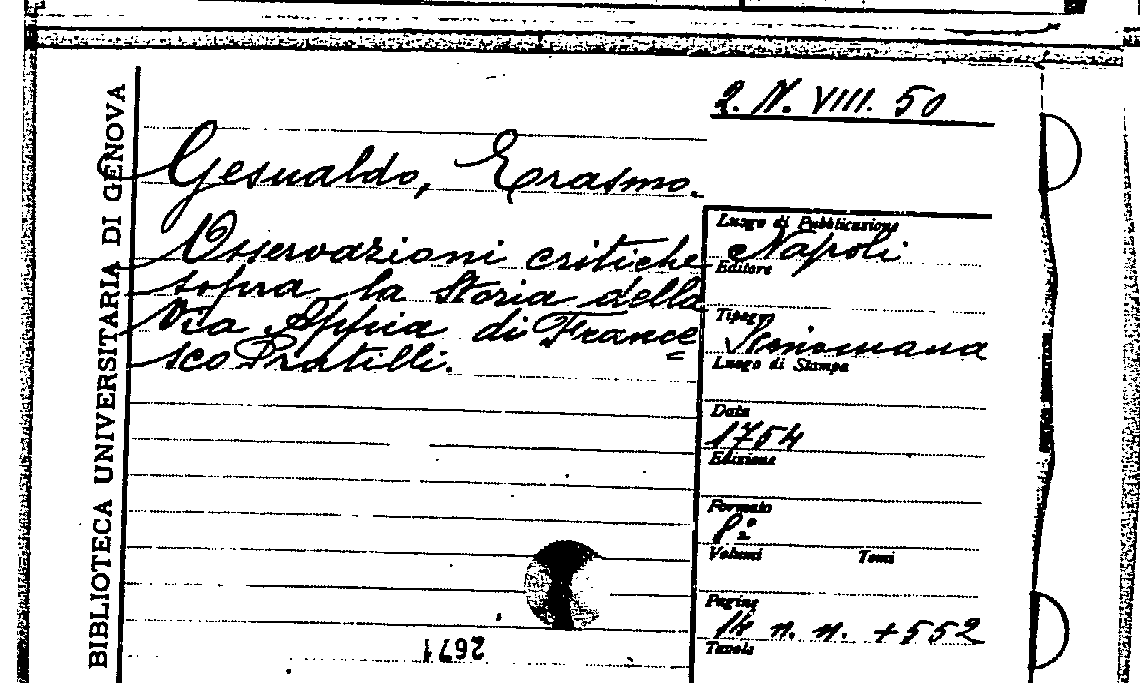 BIBLIOTECA UNIVERSITARIA DI GENOVA
2. N. VIII. 50
Gesualdo, Erasmo.
Osservazioni critiche
sopra la Storia della
Via Appia di France
sco Pratilli.
Luogo di Pubblicazione
Napoli
Editore
Tipogr.
Simoniana
Luogo di Stampa
Data
1754
Edizione
Formato
8º
Volumi Tomi
Pagine
14 n. n. + 552
Tavole
2671